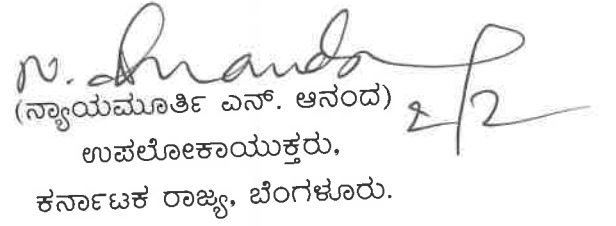 N. Ananda
(ನ್ಯಾಯಮೂರ್ತಿ ಎನ್. ಆನಂದ) 2/2
ಉಪಲೋಕಾಯುಕ್ತರು,
ಕರ್ನಾಟಕ ರಾಜ್ಯ, ಬೆಂಗಳೂರು.